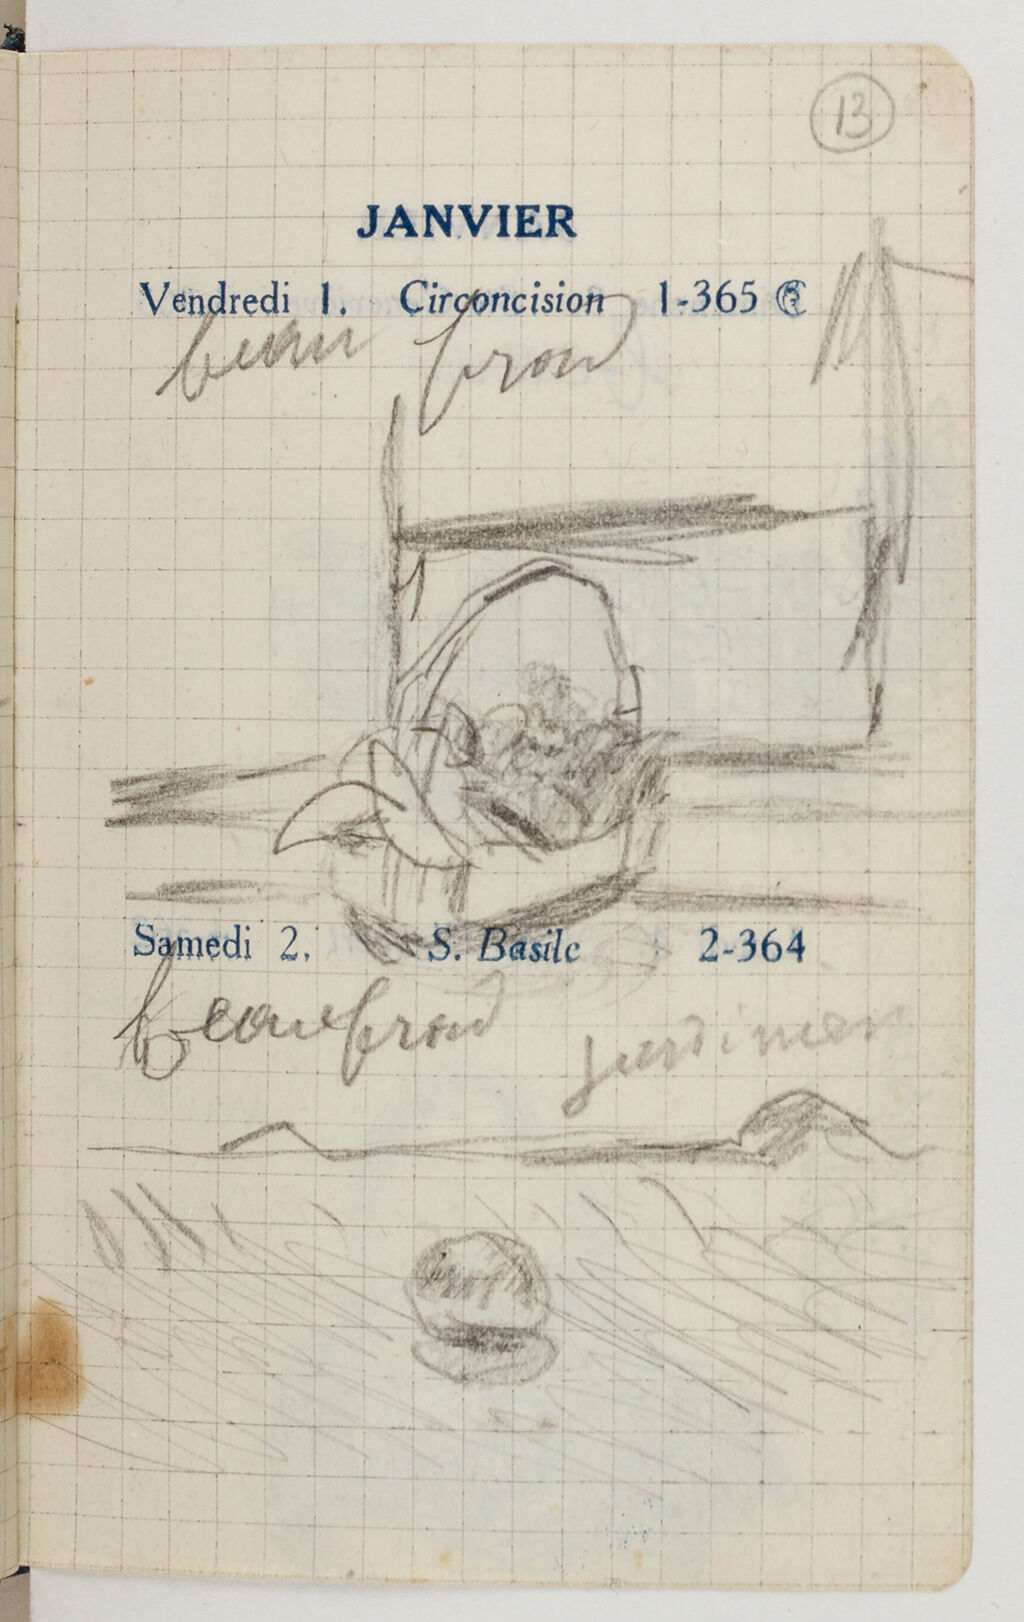 13
JANVIER
Vendredi 1. Circoncision 1-365
beau froid
Samedi 2. S. Basile 2-364
beau froid